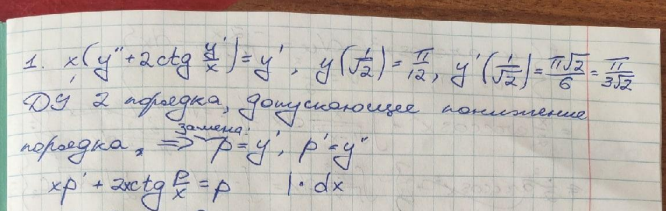 1. x(y'' + 2ctg y'/x) = y', y(1/√2) = π/12, y'(1/√2) = π√2/6 = π/3√2
ДУ 2 порядка, допускающее понижение
замена:
порядка, ⇒ p = y', p' = y''
xp' + 2xctg p/x = p | · dx